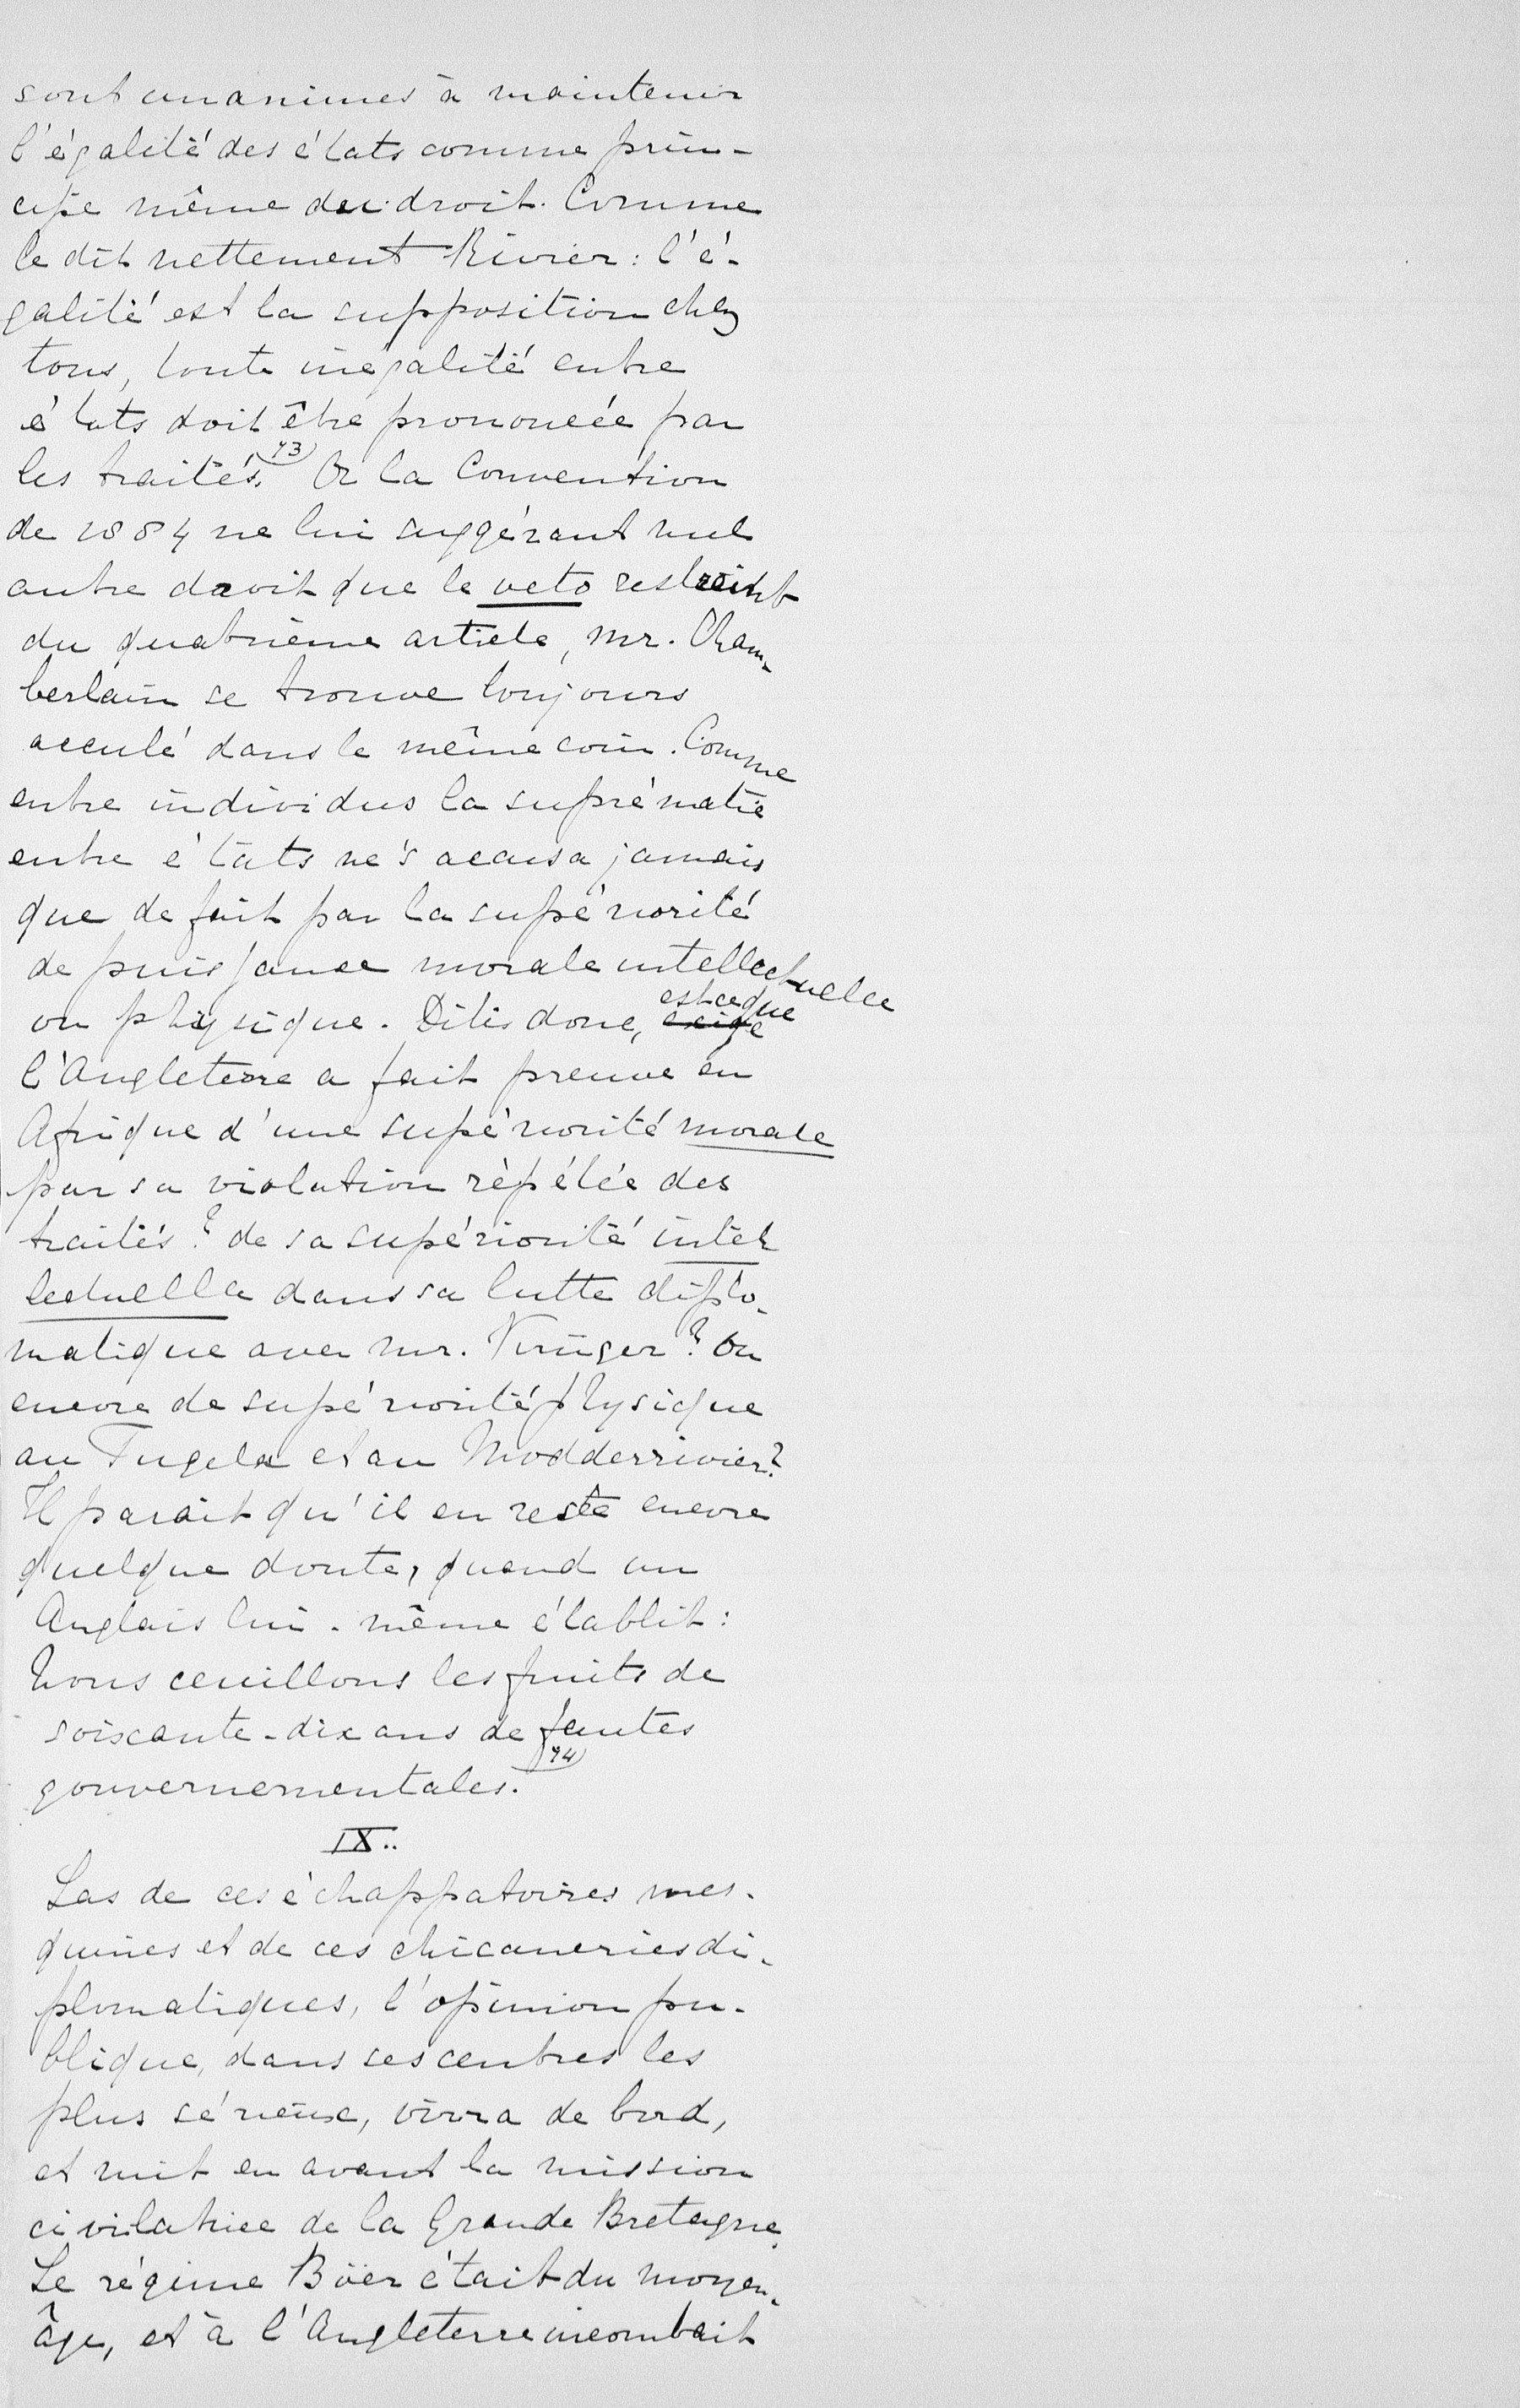 sont unanimes à maintenir
l'égalité des états comme prin-
cipe même du droit. Comme
le dit nettement Rivier: l'é-
galité est la supposition chez
tous, toute inégalité entre
états doit être prononcée par
les traités. 73) Or la Convention
de 1884 ne lui suggérant nul
autre droit que le veto restreint
du quatrième article, mr. Cham-
berlain se trouve toujours
acculé dans le même coin. Comme
entre individus la suprématie
entre états ne s'accusa jamais
que de fait par la supériorité
de puissance morale intellectuelle
ou physique. Dites donc, est-ce que
l'Angleterre a fait preuve en
Afrique d'une supériorité morale
par sa violation répétée des
traités? de sa supériorité intel
lectuelle dans sa lutte diplo-
matique avec mr. Krüger? Ou
encore de supériorité physique
au Tugela et au Modderrivier?
Il parait qu'il en reste encore
quelque doute, quand un
Anglais lui-même établit:
Nous ceuillons les fruits de
soixante-dix ans de fautes
gouvernementales. 74)
IX..
Las de ces échappatoires mes-
quines et de ces chicaneries di-
plomatiques, l'opinion pu-
blique, dans ses centres les
plus sérieux, vira de bord,
et mit en avant la mission
civilatrice de la Grande Bretagne.
Le régime Böer était du moyen-
âge, et à l'Angleterre incombait